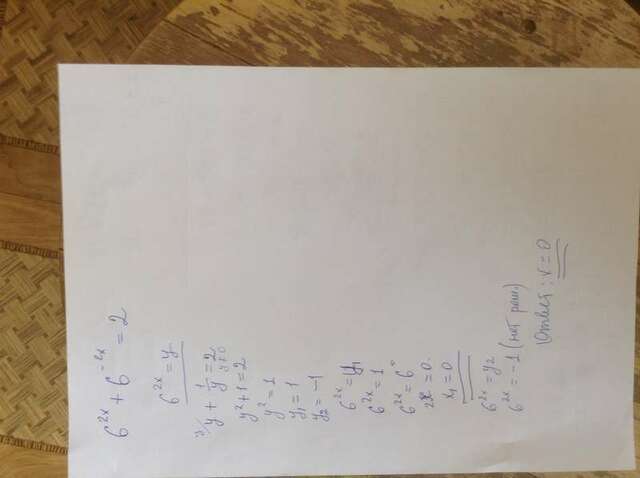 6^2x + 6^-2x = 2
6^2x = y
y/ y + 1/y = 2
y ≠ 0
y² + 1 = 2
y² = 1
y₁ = 1
y₂ = -1
6^2x = y₁
6^2x = 1
6^2x = 6°
2x = 0.
x₁ = 0
6^2x = y₂
6^2x = -1 (нет реш.)
Ответ: x = 0